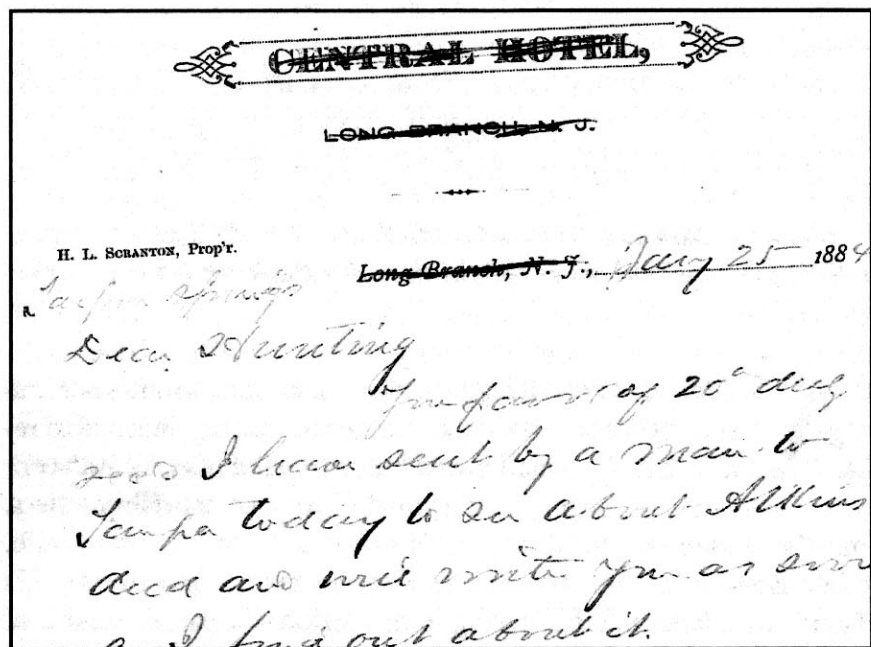 CENTRAL HOTEL,
LONG BRANCH, N. J.
H. L. SCRANTON, Prop'r.
Long Branch, N. J., Jany 25 1884
Tarpon Springs
Dear Hunting
Your favor of 20" duly
recd I have sent by a man to
Tampa today to see about Atkins
deed and will write you as soon
as I find out about it.